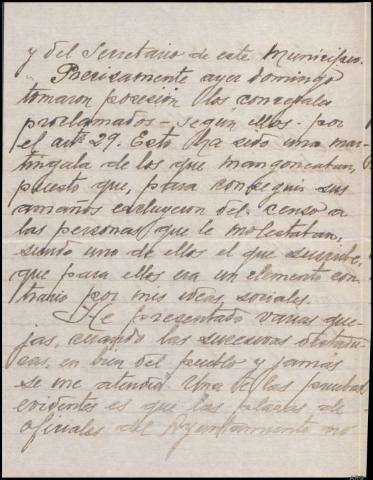 y del Secretario de este Municipio.
Precisamente ayer domingo
tomaron posesión los concejales
proclamados - según ellos - por
el artº 29. Esto ha sido una mar-
tingala de los que mangonean,
puesto que, para conseguir sus
amaños excluyeron del censo a
las personas que le molestaban,
siendo uno de ellos el que suscribe,
que para ellos era un elemento con-
trario por mis ideas sociales.
He presentado varias que-
jas, cuando las sucesivas dictadu-
ras, en bien del pueblo y jamás
se me atendió. Una de las pruebas
evidentes es que las plazas de
oficiales del Ayuntamiento no